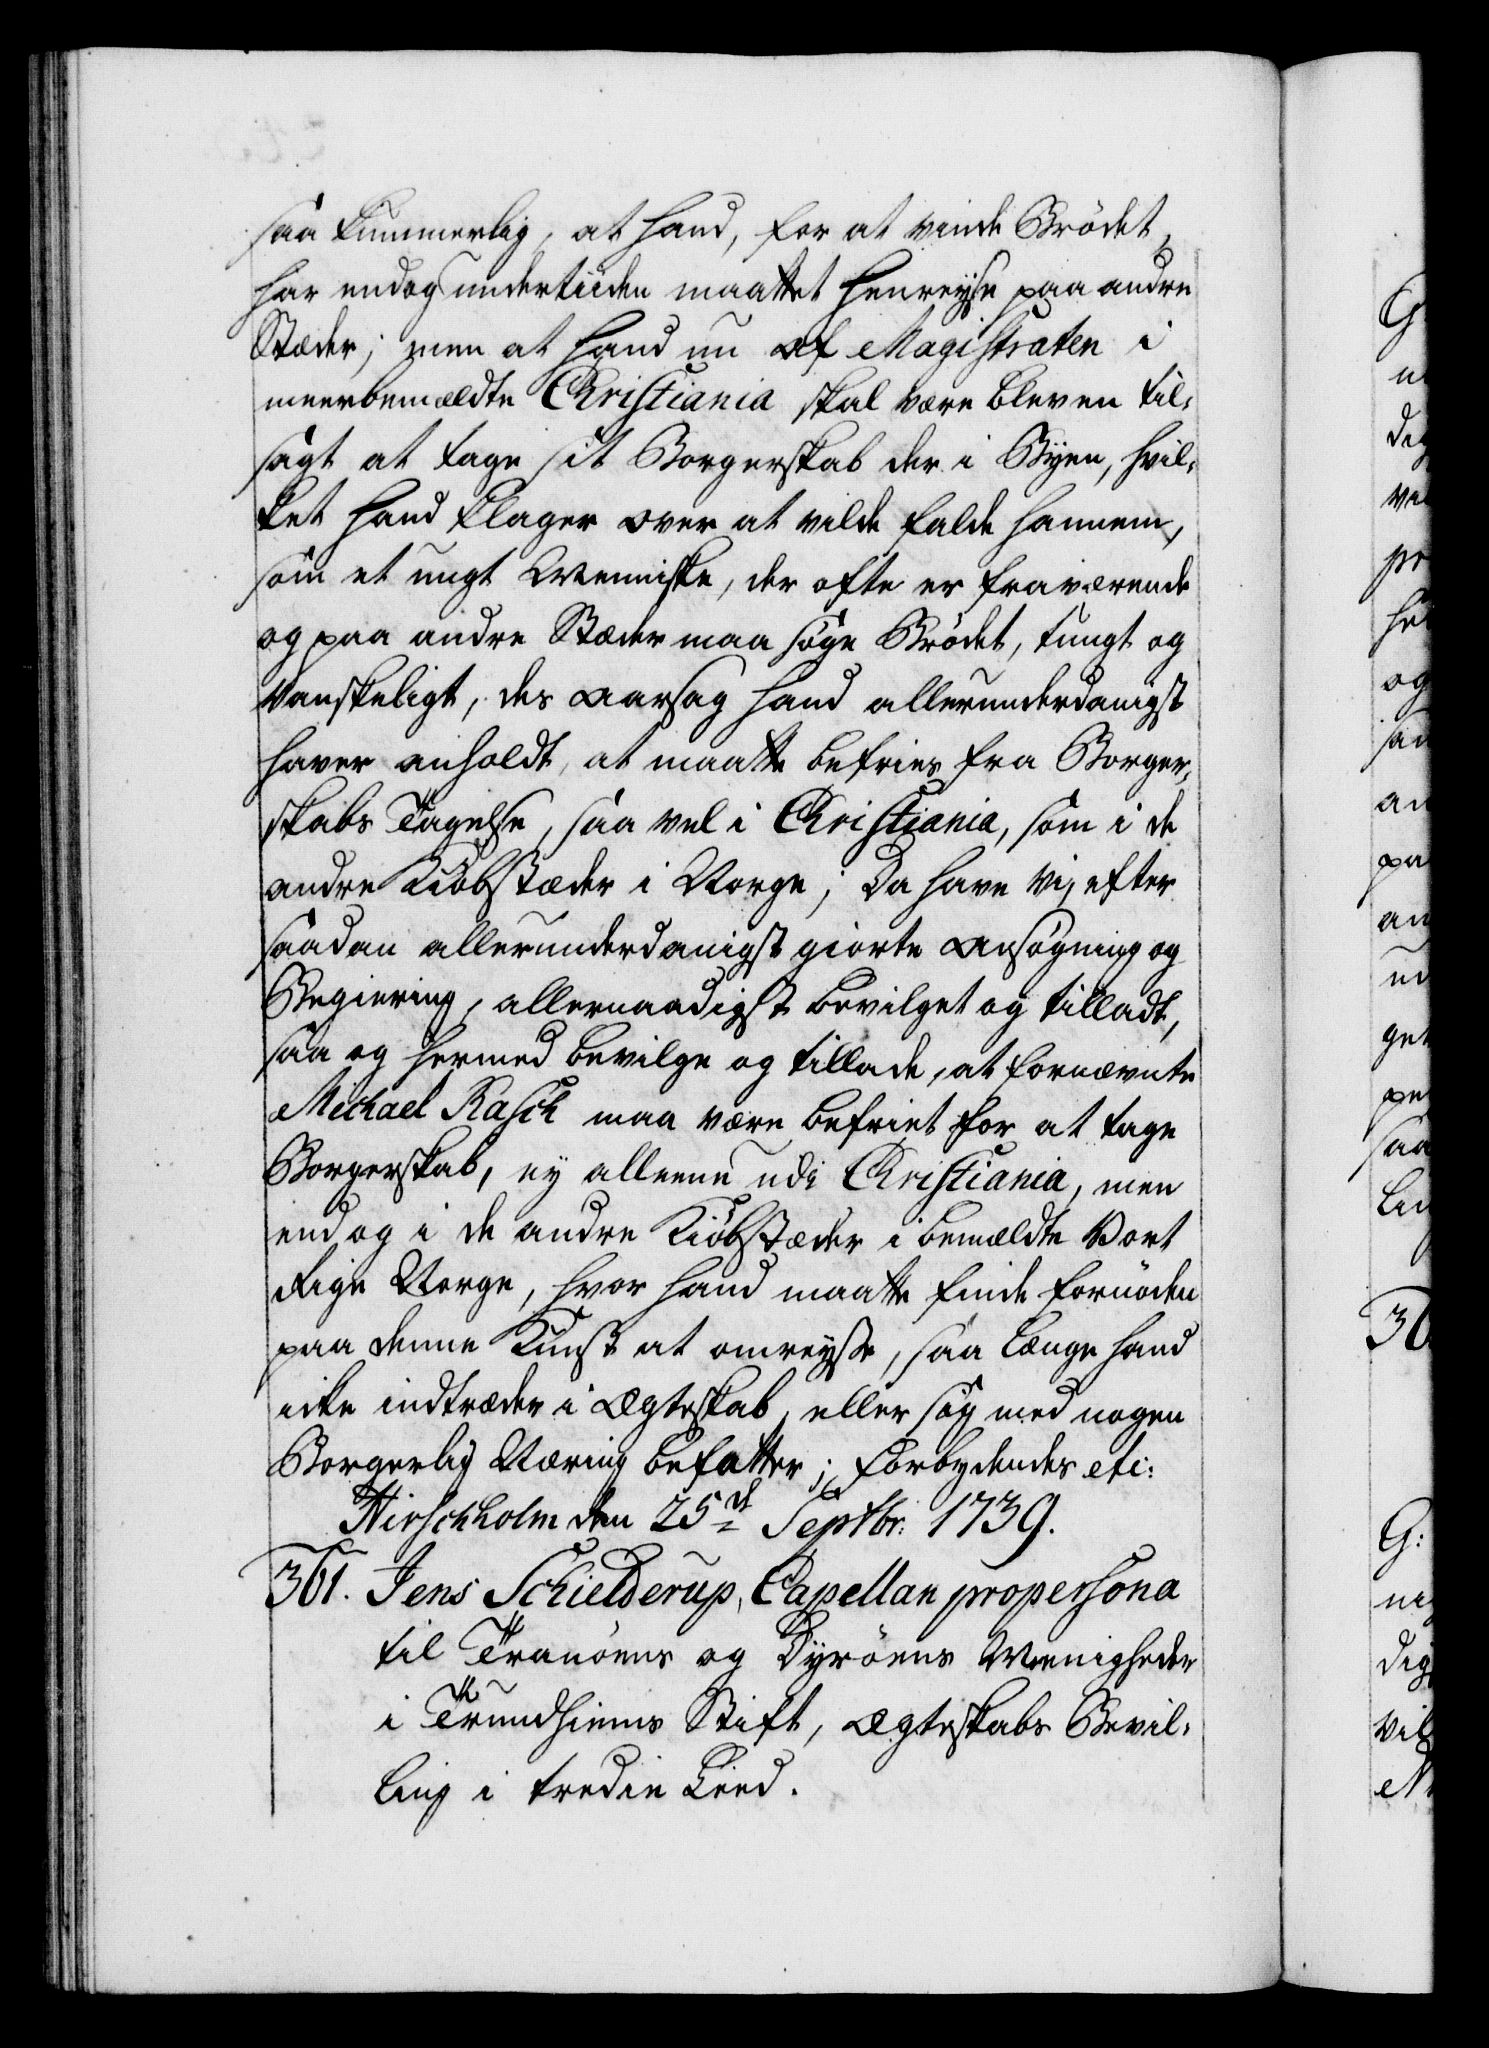 saa kummerlig, at hand, for at vinde Brödet,
har endog undertiiden maattet henreyse paa andre
Stæder; men at hand nu af Magistraten i
meerbemældte Christiania skal være bleven til-
sagt at tage sit Borgerskab der i Byen, hvil-
ket hand klager over at vilde falde hannem,
som et ungt Menniske, der ofte er fraværende
og paa andre Stæder maa söge Brödet, tungt og
vanskeligt, des aarsag hand allerunderdanigst
haver anholdt, at maatte befries fra Borger-
skabs Tagelse, saa vel i Christiania, som i de
andre Kiöbstæder i Norge; Da have Vi, efter
saadan allerunderdanigst giorte ansøgning og
Begiering, allernaadigst bevilget og tilladt,
saa og hermed bevilge og tillade, at fornævnte
Michael Rasch maa være befriet for at tage
Borgerskab, ey alleene udi Christiania, men
endog i de andre Kiöbstæder i bemældte Vort
Rige Norge, hvor hand maatte finde fornöden
paa denne Kunst at omreyse, saa længe hand
icke indtræder i Ægteskab, eller sig med nogen
Borgerlig Næring befatter; Forbydendes etc:
Hirschholm den 25de Septbr: 1739.
361. Jens Schielderup, Capellan propersona
til Tranöens og Dyröens Menigheder
i Trundhiems Stift, Ægteskabs Bevil-
ling i tredie Leed.